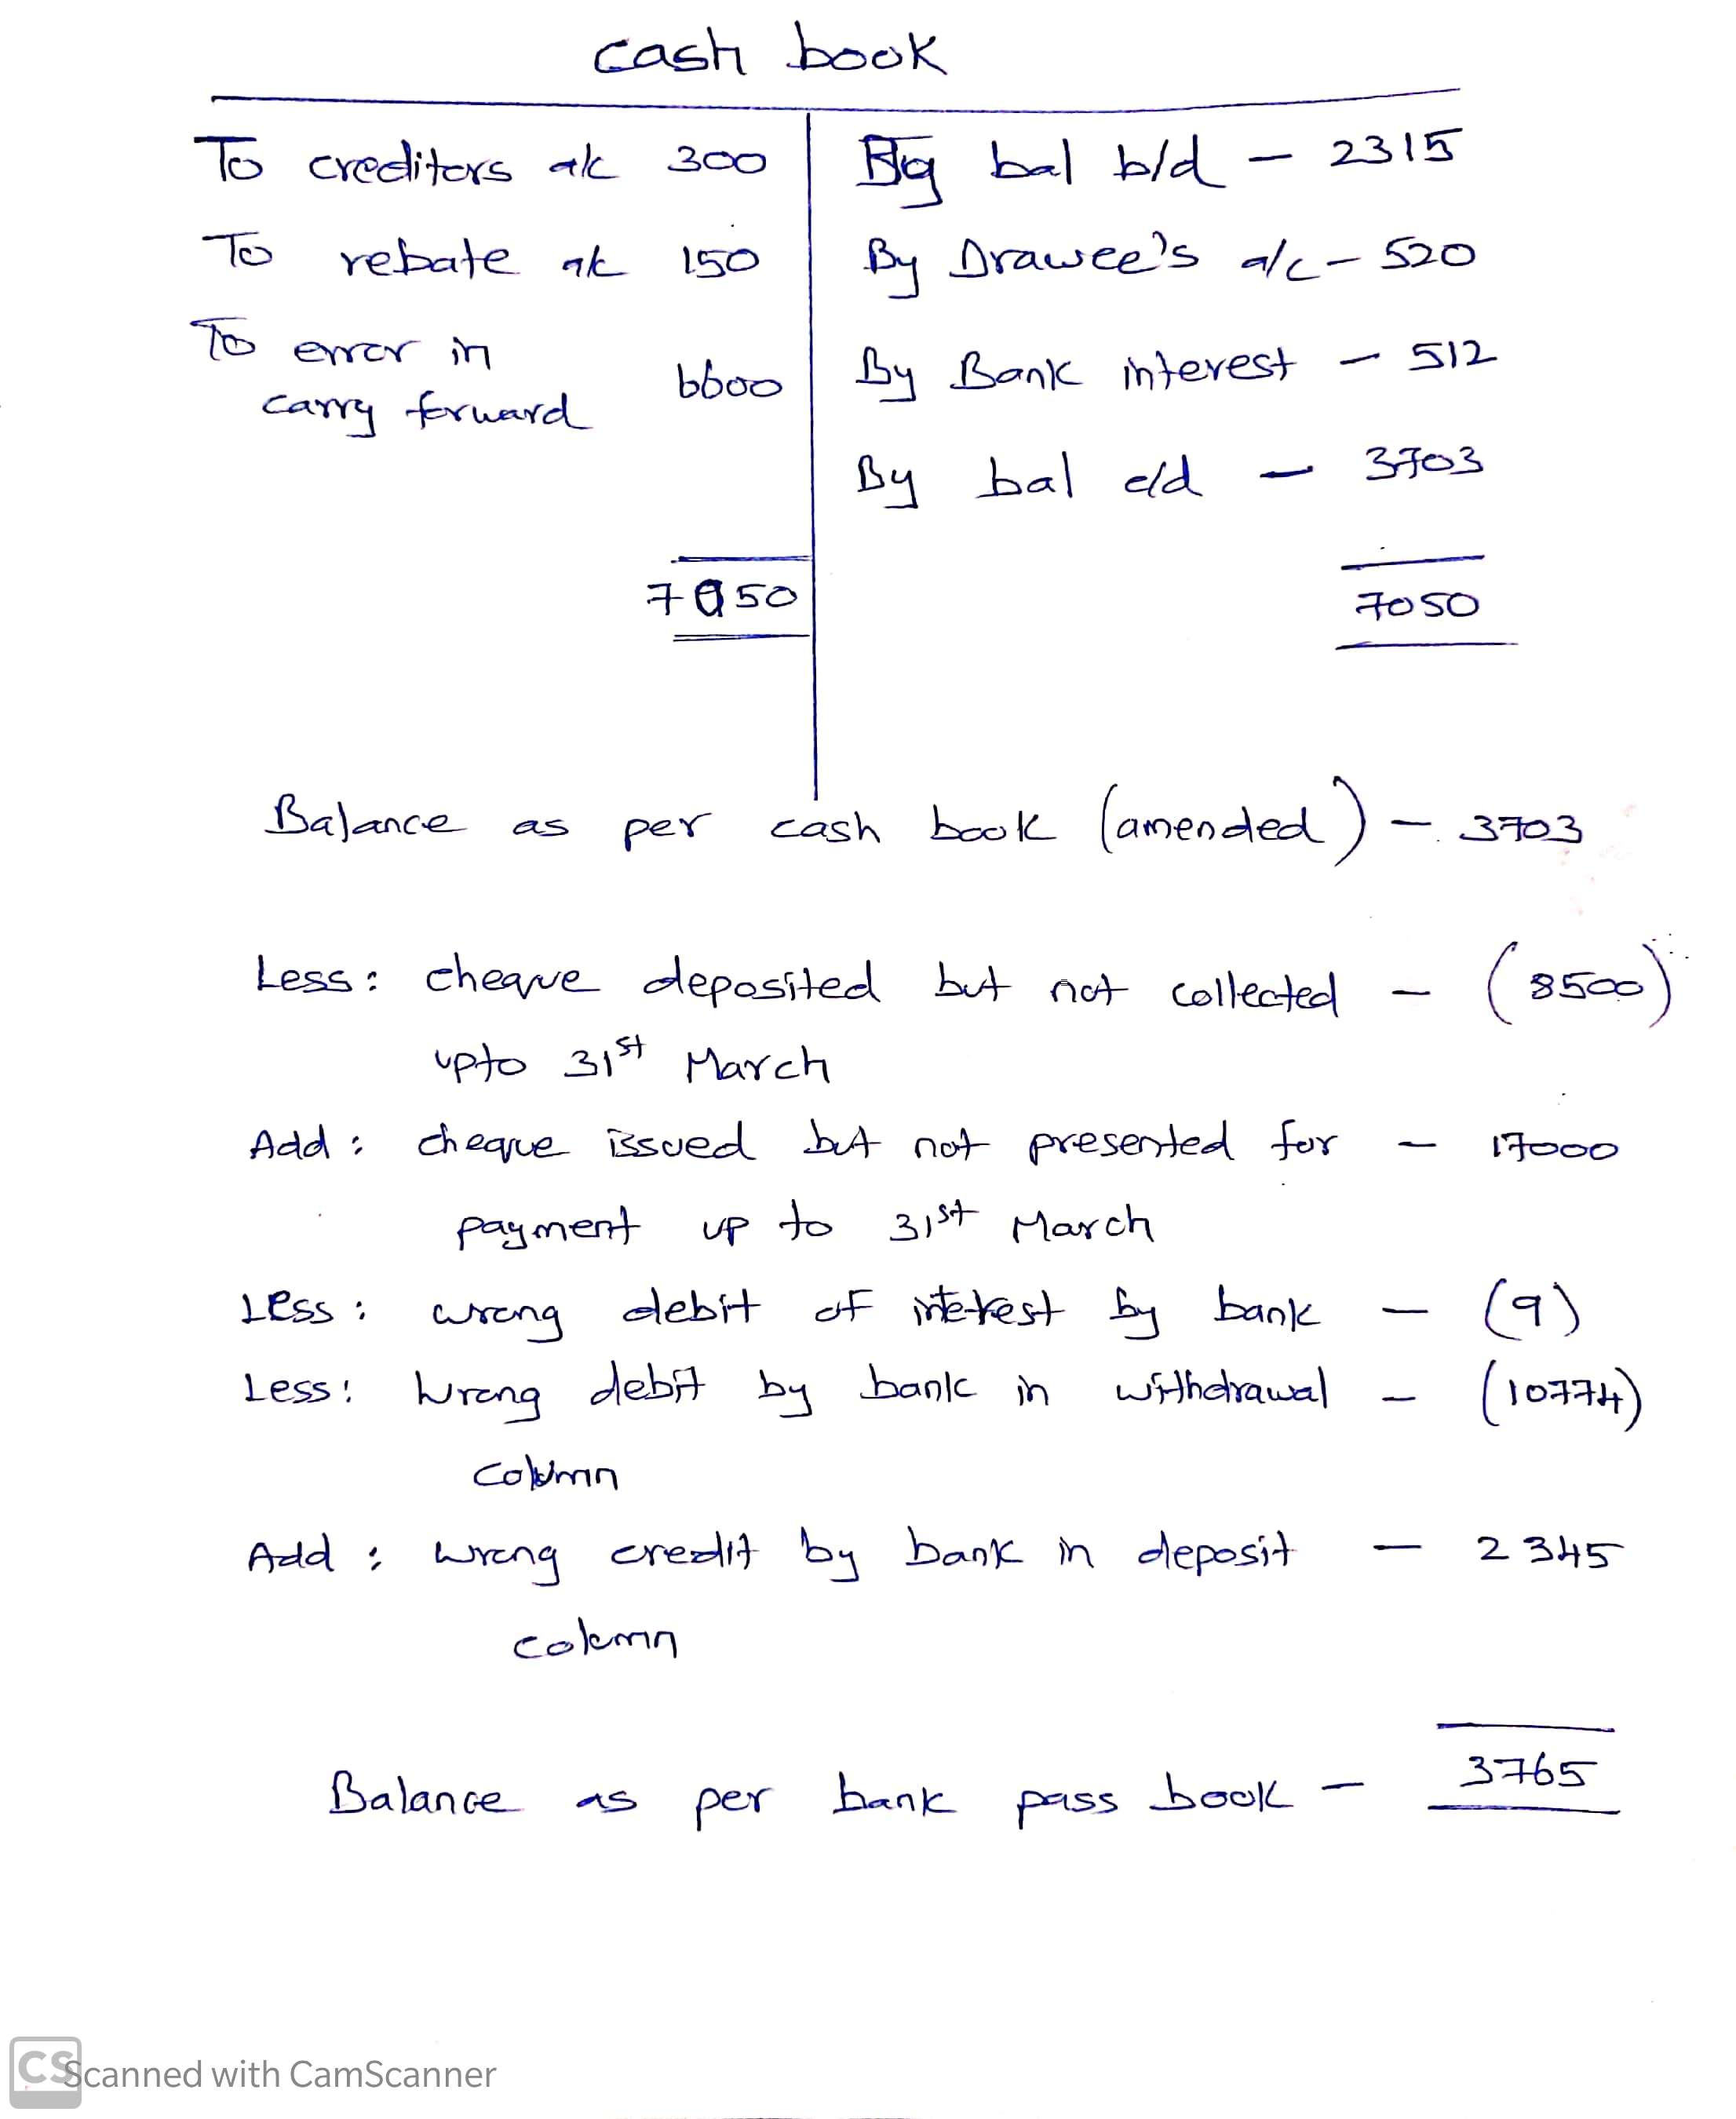 cash book
To creditors a/c 300 | By bal b/d – 2315
To rebate a/c 150 | By Drawee's a/c – 520
To error in
carry forward 6600 | By Bank interest – 512
By bal c/d – 3703
7050 | 7050
Balance as per cash book (amended) – 3703
Less: cheque deposited but not collected – (8500)
upto 31st March
Add: cheque issued but not presented for – 17000
payment up to 31st March
Less: wrong debit of interest by bank – (9)
Less: Wrong debit by bank in withdrawal – (10774)
column
Add: wrong credit by bank in deposit – 2345
column
Balance as per bank pass book – 3765
CS Scanned with CamScanner